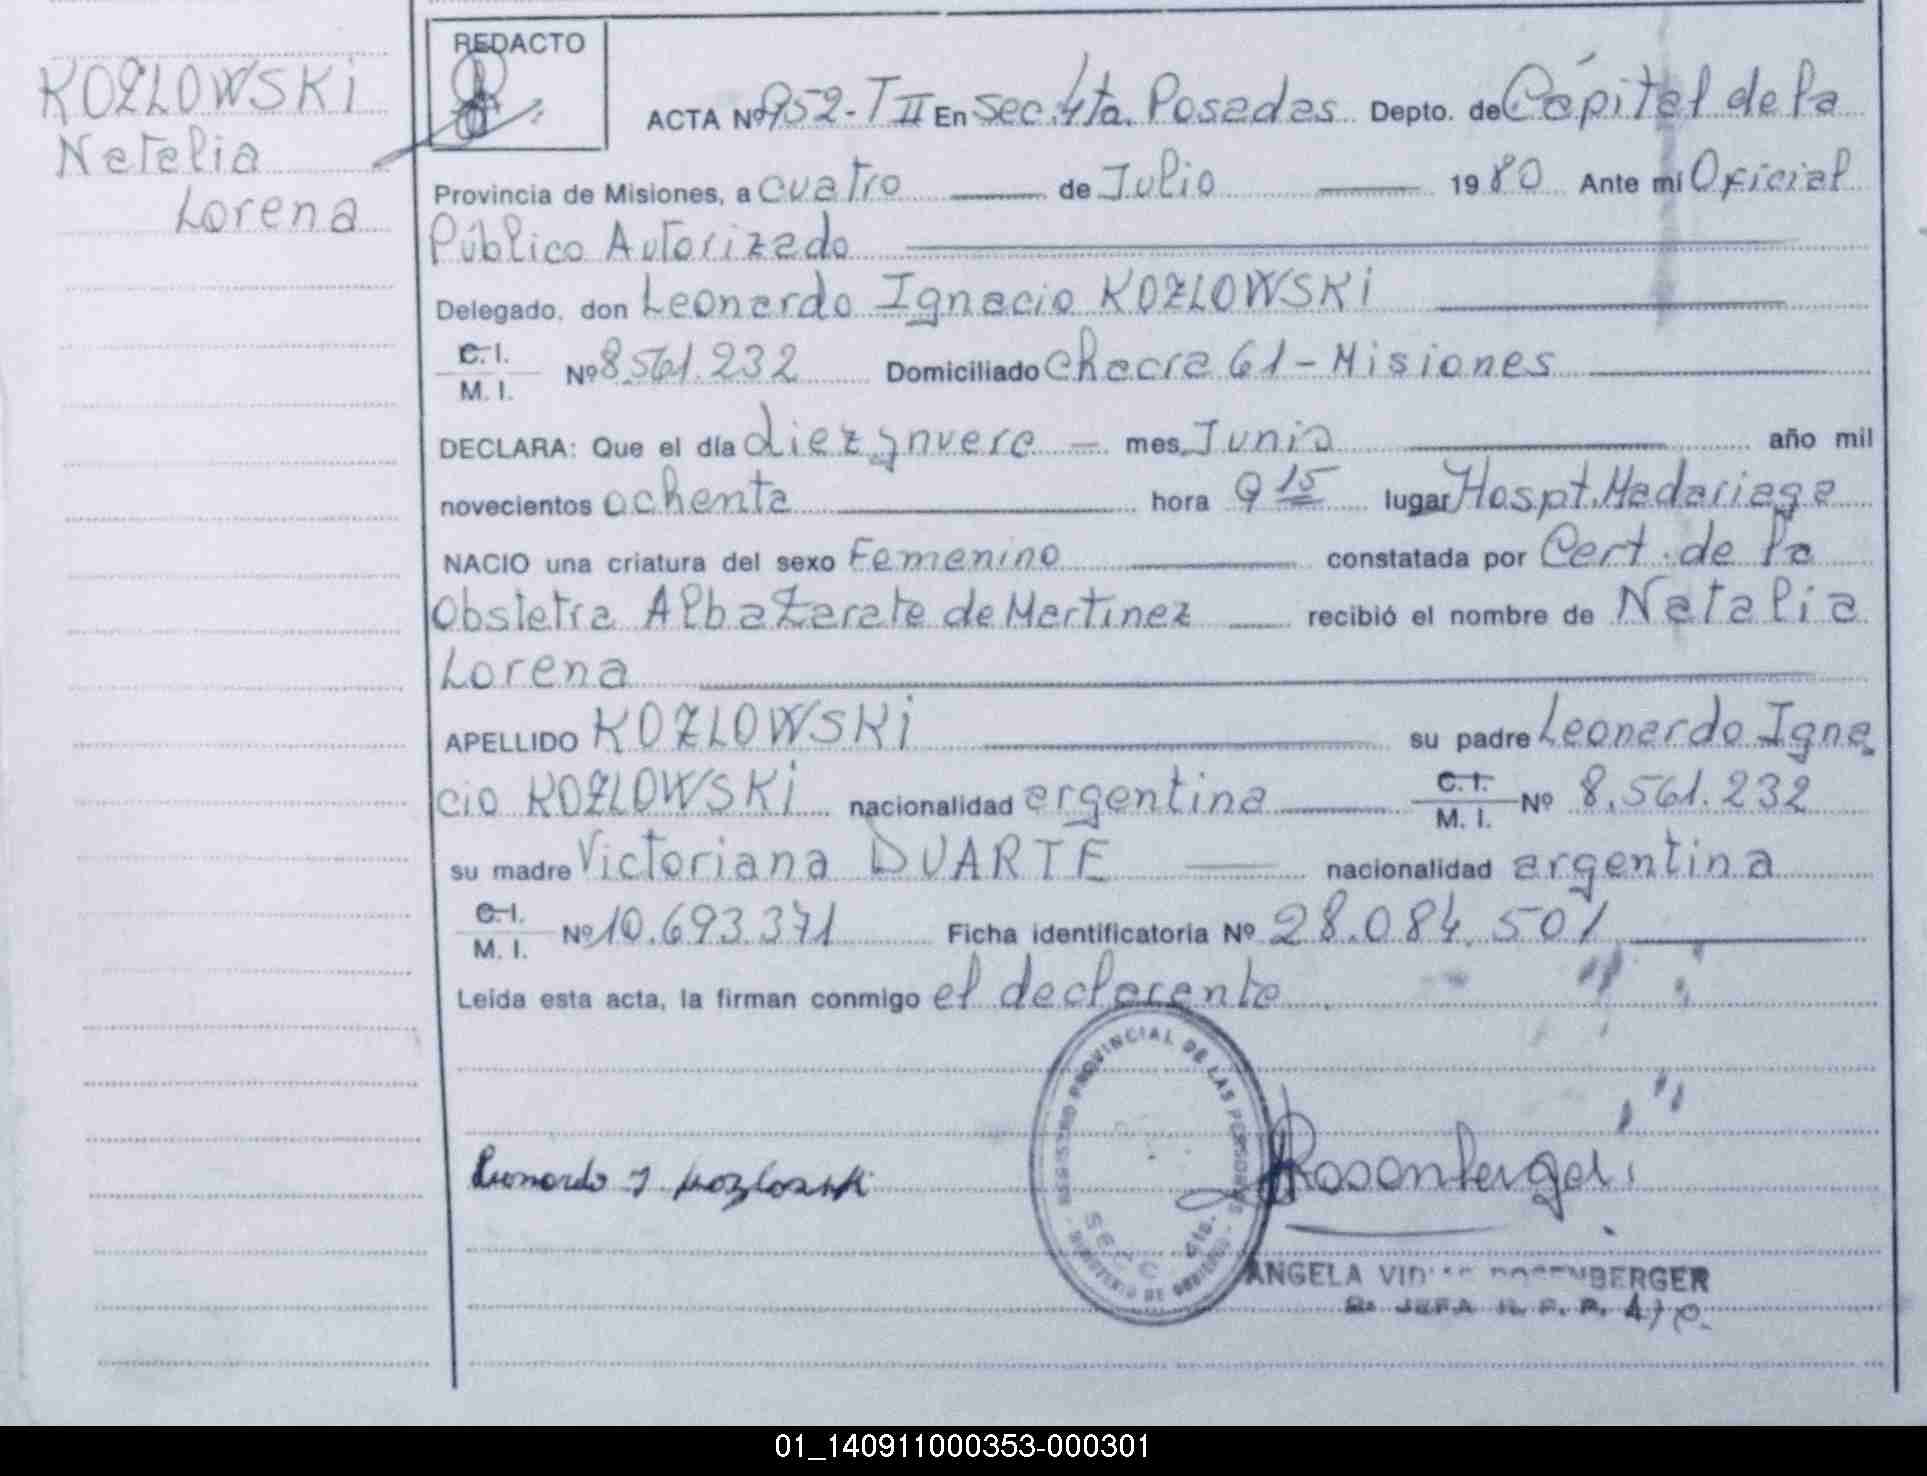 KOZLOWSKi
Natalia
Lorena
REDACTO
ACTA Nº 952-T II En Sec. 4ta. Posadas Depto. de Cápital de la
Provincia de Misiones, a cuatro de Julio 1980 Ante mi Oficial
Público Autorizado
Delegado, don Leonardo Ignacio KOZLOWSKi
C. I.
M. I. Nº 8.561.232 Domiciliado Chacra 61 - Misiones
DECLARA: Que el día diez y nueve mes Junio año mil
novecientos ochenta hora 9 15 lugar Hospt. Madariaga
NACIO una criatura del sexo Femenino constatada por Cert. de la
Obstetra Alba Zarate de Martinez recibió el nombre de Natalia
Lorena
APELLIDO KOZLOWSKi su padre Leonardo Igna
cio KOZLOWSKi nacionalidad argentina C. I. M. I. Nº 8.561.232
su madre Victoriana DUARTE nacionalidad argentina
C. I.
M. I. Nº 10.693.371 Ficha identificatoria Nº 28.084.501
Leída esta acta, la firman conmigo el declarente
REGISTRO PROVINCIAL DE LAS PERSONAS
MINISTERIO DE GOBIERNO
SECC 4ta.
Leonardo I Kozlowski
Rosenberger
ANGELA ROSENBERGER
JEFA R. P. P.
01_140911000353-000301